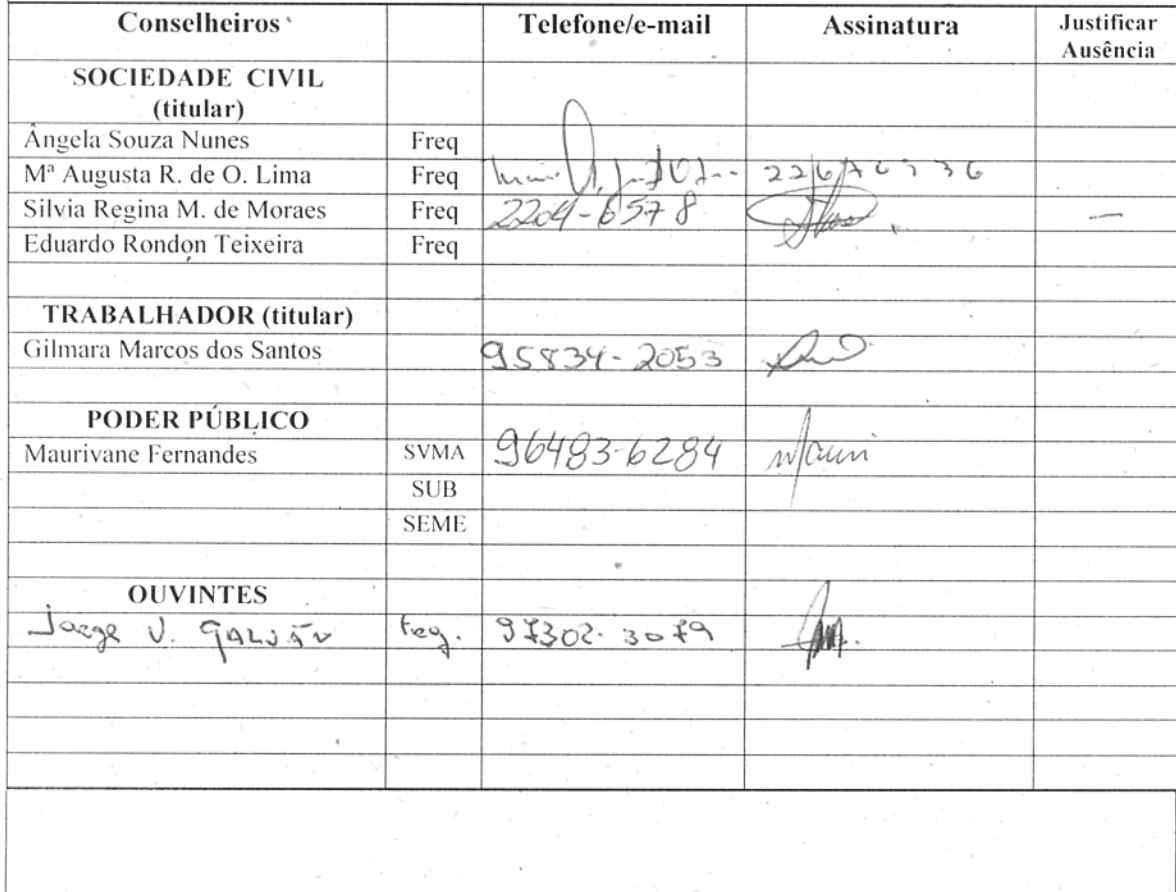 Conselheiros Telefone/e-mail Assinatura Justificar Ausência
SOCIEDADE CIVIL
(titular)
Ângela Souza Nunes Freq
Mª Augusta R. de O. Lima Freq
Silvia Regina M. de Moraes Freq 2204-6578
Eduardo Rondon Teixeira Freq
TRABALHADOR (titular)
Gilmara Marcos dos Santos 95834-2053
PODER PÚBLICO
Maurivane Fernandes SVMA 96483-6284 Mauri
SUB
SEME
OUVINTES
Jorge V. GALVÃO Freq. 97302-3079